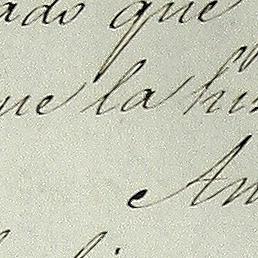 ado que
ue la his
An